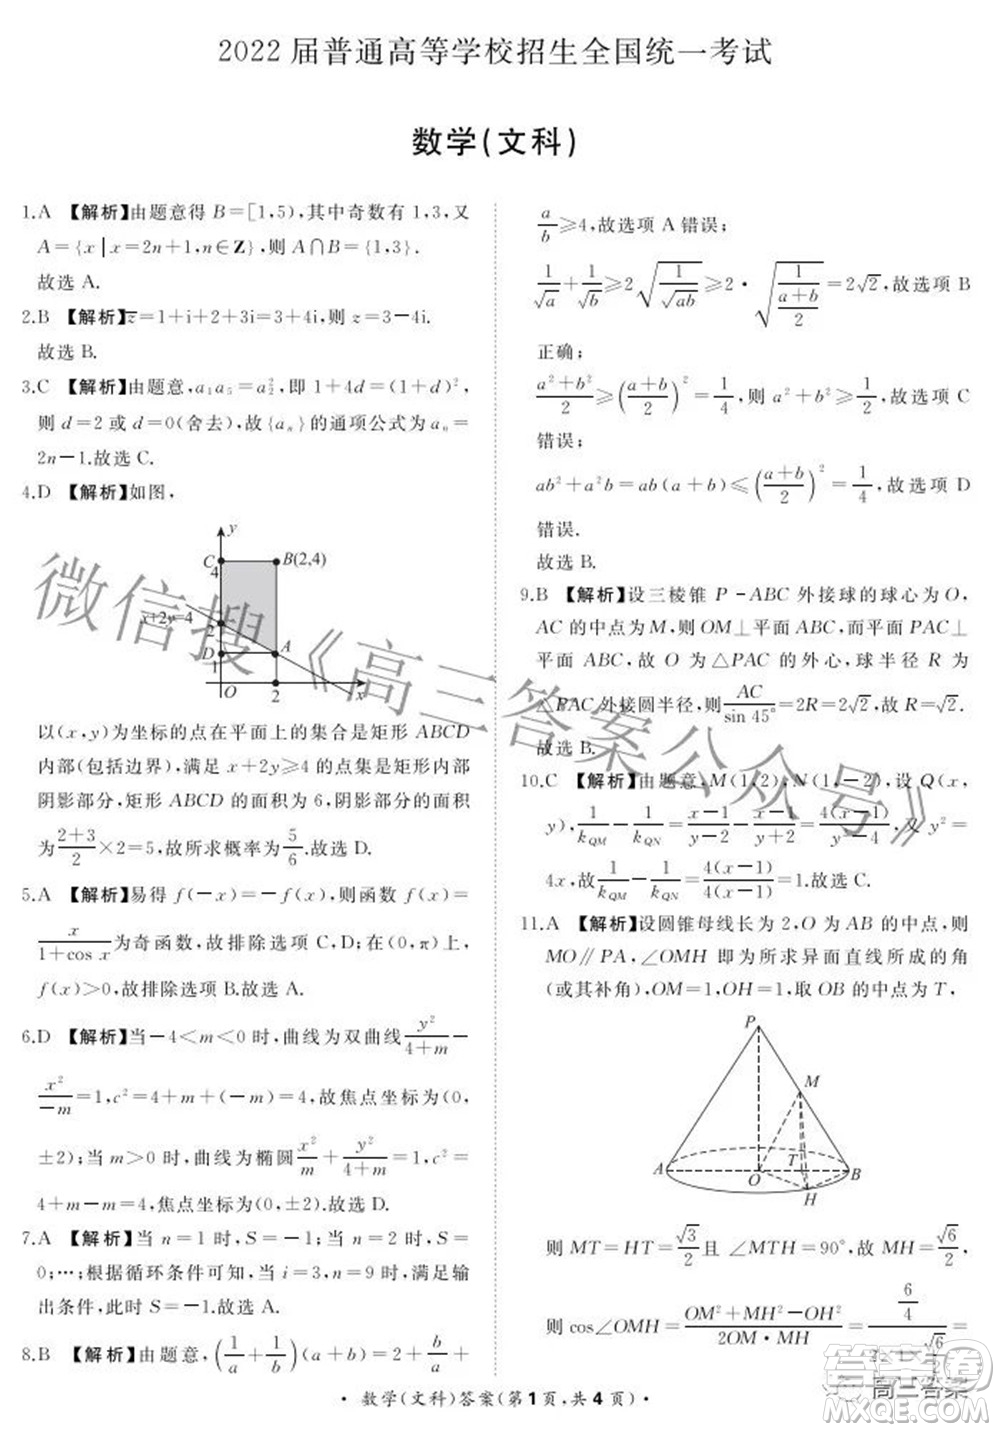 2022 届普通高等学校招生全国统一考试
数学(文科)
1.A 【解析】由题意得 B=[1,5),其中奇数有 1,3,又
A={x|x=2n+1,n∈Z},则 A∩B={1,3}.
故选 A.
2.B 【解析】z̅=1+i+2+3i=3+4i,则 z=3-4i.
故选 B.
3.C 【解析】由题意,a₁a₅=a₂²,即 1+4d=(1+d)²,
则 d=2 或 d=0(舍去),故{aₙ}的通项公式为 aₙ=
2n-1.故选 C.
4.D 【解析】如图,
y
C
4
B(2,4)
x+2y=4
2
D
1
A
O
2
x
以(x,y)为坐标的点在平面上的集合是矩形 ABCD
内部(包括边界),满足 x+2y≥4 的点集是矩形内部
阴影部分,矩形 ABCD 的面积为 6,阴影部分的面积
为(2+3)/2×2=5,故所求概率为5/6.故选 D.
5.A 【解析】易得 f(-x)=-f(x),则函数 f(x)=
x/(1+cos x)为奇函数,故排除选项 C,D;在(0,π)上,
f(x)>0,故排除选项 B.故选 A.
6.D 【解析】当-4<m<0 时,曲线为双曲线y²/(4+m)-
x²/(-m)=1,c²=4+m+(-m)=4,故焦点坐标为(0,
±2);当 m>0 时,曲线为椭圆x²/m+y²/(4+m)=1,c²=
4+m-m=4,焦点坐标为(0,±2).故选 D.
7.A 【解析】当 n=1 时,S=-1;当 n=2 时,S=
0;…;根据循环条件可知,当 i=3,n=9 时,满足输
出条件,此时 S=-1.故选 A.
8.B 【解析】由题意,(1/a+1/b)(a+b)=2+b/a+
a/b≥4,故选项 A 错误;
1/√a+1/√b≥2√(1/√(ab))≥2·√(1/((a+b)/2))=2√2,故选项 B
正确;
(a²+b²)/2≥((a+b)/2)²=1/4,则 a²+b²≥1/2,故选项 C
错误;
ab²+a²b=ab(a+b)≤((a+b)/2)²=1/4,故选项 D
错误.
故选 B.
9.B 【解析】设三棱锥 P-ABC 外接球的球心为 O,
AC 的中点为 M,则 OM⊥平面 ABC,而平面 PAC⊥
平面 ABC,故 O 为△PAC 的外心,球半径 R 为
△PAC 外接圆半径,则AC/sin 45°=2R=2√2,故 R=√2.
故选 B.
10.C 【解析】由题意,M(1,2),N(1,-2),设 Q(x,
y),1/k_QM-1/k_QN=(x-1)/(y-2)-(x-1)/(y+2)=4(x-1)/(y²-4),又 y²=
4x,故1/k_QM-1/k_QN=4(x-1)/4(x-1)=1.故选 C.
11.A 【解析】设圆锥母线长为 2,O 为 AB 的中点,则
MO∥PA,∠OMH 即为所求异面直线所成的角
(或其补角),OM=1,OH=1,取 OB 的中点为 T,
P
M
A
O
T
B
H
则 MT=HT=√3/2且∠MTH=90°,故 MH=√6/2,
则 cos∠OMH=(OM²+MH²-OH²)/(2OM·MH)=(6/4)/(2×1×√6/2)=
· 数学(文科)答案(第 1 页,共 4 页) ·
微信搜《高三答案公众号》
高三答案